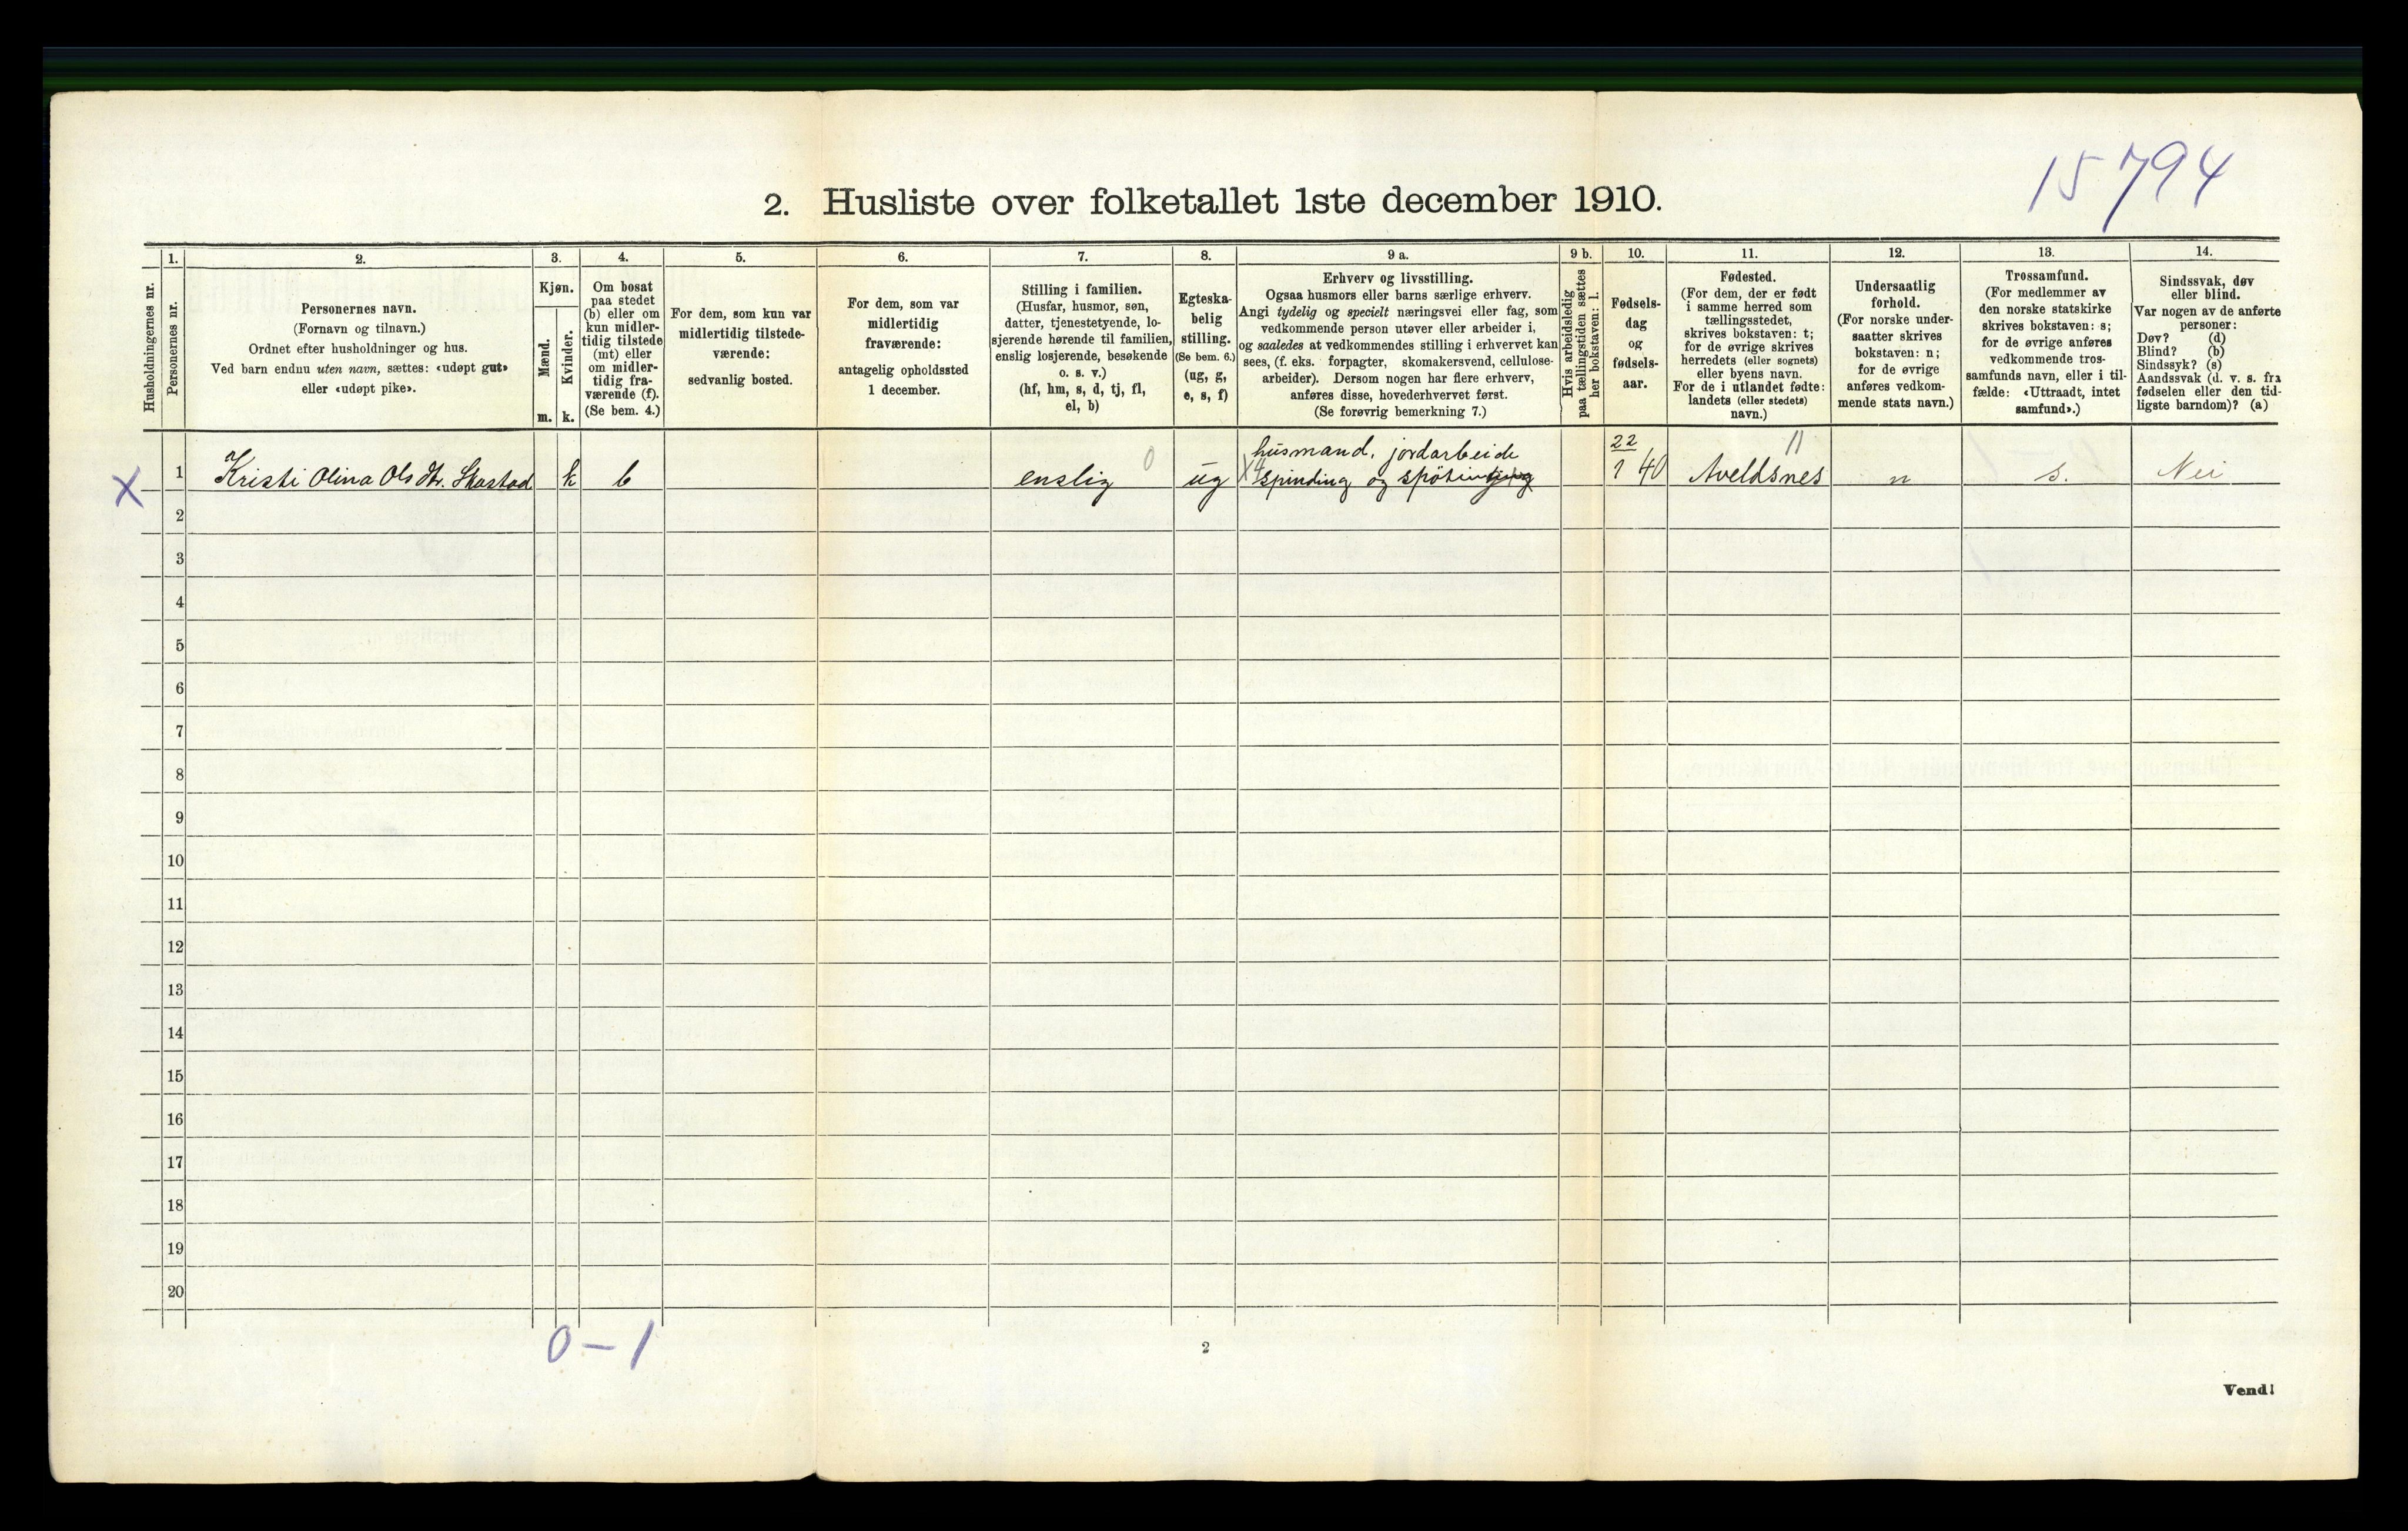 15794
2. Husliste over folketallet 1ste december 1910.
Husholdningernes nr.
1.
Personernes nr.
2.
Personernes navn.
(Fornavn og tilnavn.)
Ordnet efter husholdninger og hus.
Ved barn endnu uten navn, sættes: «udøpt gut»
eller «udøpt pike».
3.
Kjøn.
Mænd.
m.
Kvinder.
k.
4.
Om bosat
paa stedet
(b) eller om
kun midler-
tidig tilstede
(mt) eller
om midler-
tidig fra-
værende (f).
(Se bem. 4.)
5.
For dem, som kun var
midlertidig tilstede-
værende:
sedvanlig bosted.
6.
For dem, som var
midlertidig
fraværende:
antagelig opholdssted
1 december.
7.
Stilling i familien.
(Husfar, husmor, søn,
datter, tjenestetyende, lo-
sjerende hørende til familien,
enslig losjerende, besøkende
o. s. v.)
(hf, hm, s, d, tj, fl,
el, b)
8.
Egteska-
belig
stilling.
(Se bem. 6.)
(ug, g,
e, s, f)
9 a.
Erhverv og livsstilling.
Ogsaa husmors eller barns særlige erhverv.
Angi tydelig og specielt næringsvei eller fag, som
vedkommende person utøver eller arbeider i,
og saaledes at vedkommendes stilling i erhvervet kan
sees, (f. eks. forpagter, skomakersvend, cellulose-
arbeider). Dersom nogen har flere erhverv,
anføres disse, hovederhvervet først.
(Se forøvrig bemerkning 7.)
9 b.
Hvis arbeidsledig
paa tællingstiden sættes
her bokstaven: l.
10.
Fødsels-
dag
og
fødsels-
aar.
11.
Fødested.
(For dem, der er født
i samme herred som
tællingsstedet,
skrives bokstaven: t;
for de øvrige skrives
herredets (eller sognets)
eller byens navn.
For de i utlandet fødte:
landets (eller stedets)
navn.)
12.
Undersaatlig
forhold.
(For norske under-
saatter skrives
bokstaven: n;
for de øvrige
anføres vedkom-
mende stats navn.)
13.
Trossamfund.
(For medlemmer av
den norske statskirke
skrives bokstaven: s;
for de øvrige anføres
vedkommende tros-
samfunds navn, eller i til-
fælde: «Uttraadt, intet
samfund».)
14.
Sindssvak, døv
eller blind.
Var nogen av de anførte
personer:
Døv? (d)
Blind? (b)
Sindssyk? (s)
Aandssvak (d. v. s. fra
fødselen eller den tid-
ligste barndom)? (a)
husmand, jordarbeide 22 11
X 1 Kristi Olina Olsdtr. Skastad k b enslig 0 ug X4 spinding og spöting 1 40 Aveldsnes n s. Nei
2
3
4
5
6
7
8
9
10
11
12
13
14
15
16
17
18
19
20
0 – 1
2
Vend!